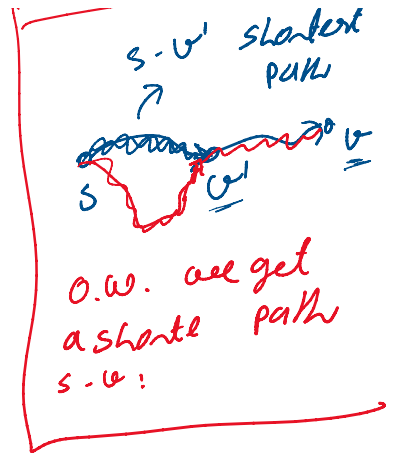 s - v' shortest
path
s
v'
v
O.W. we get
a shorte path
s - v !